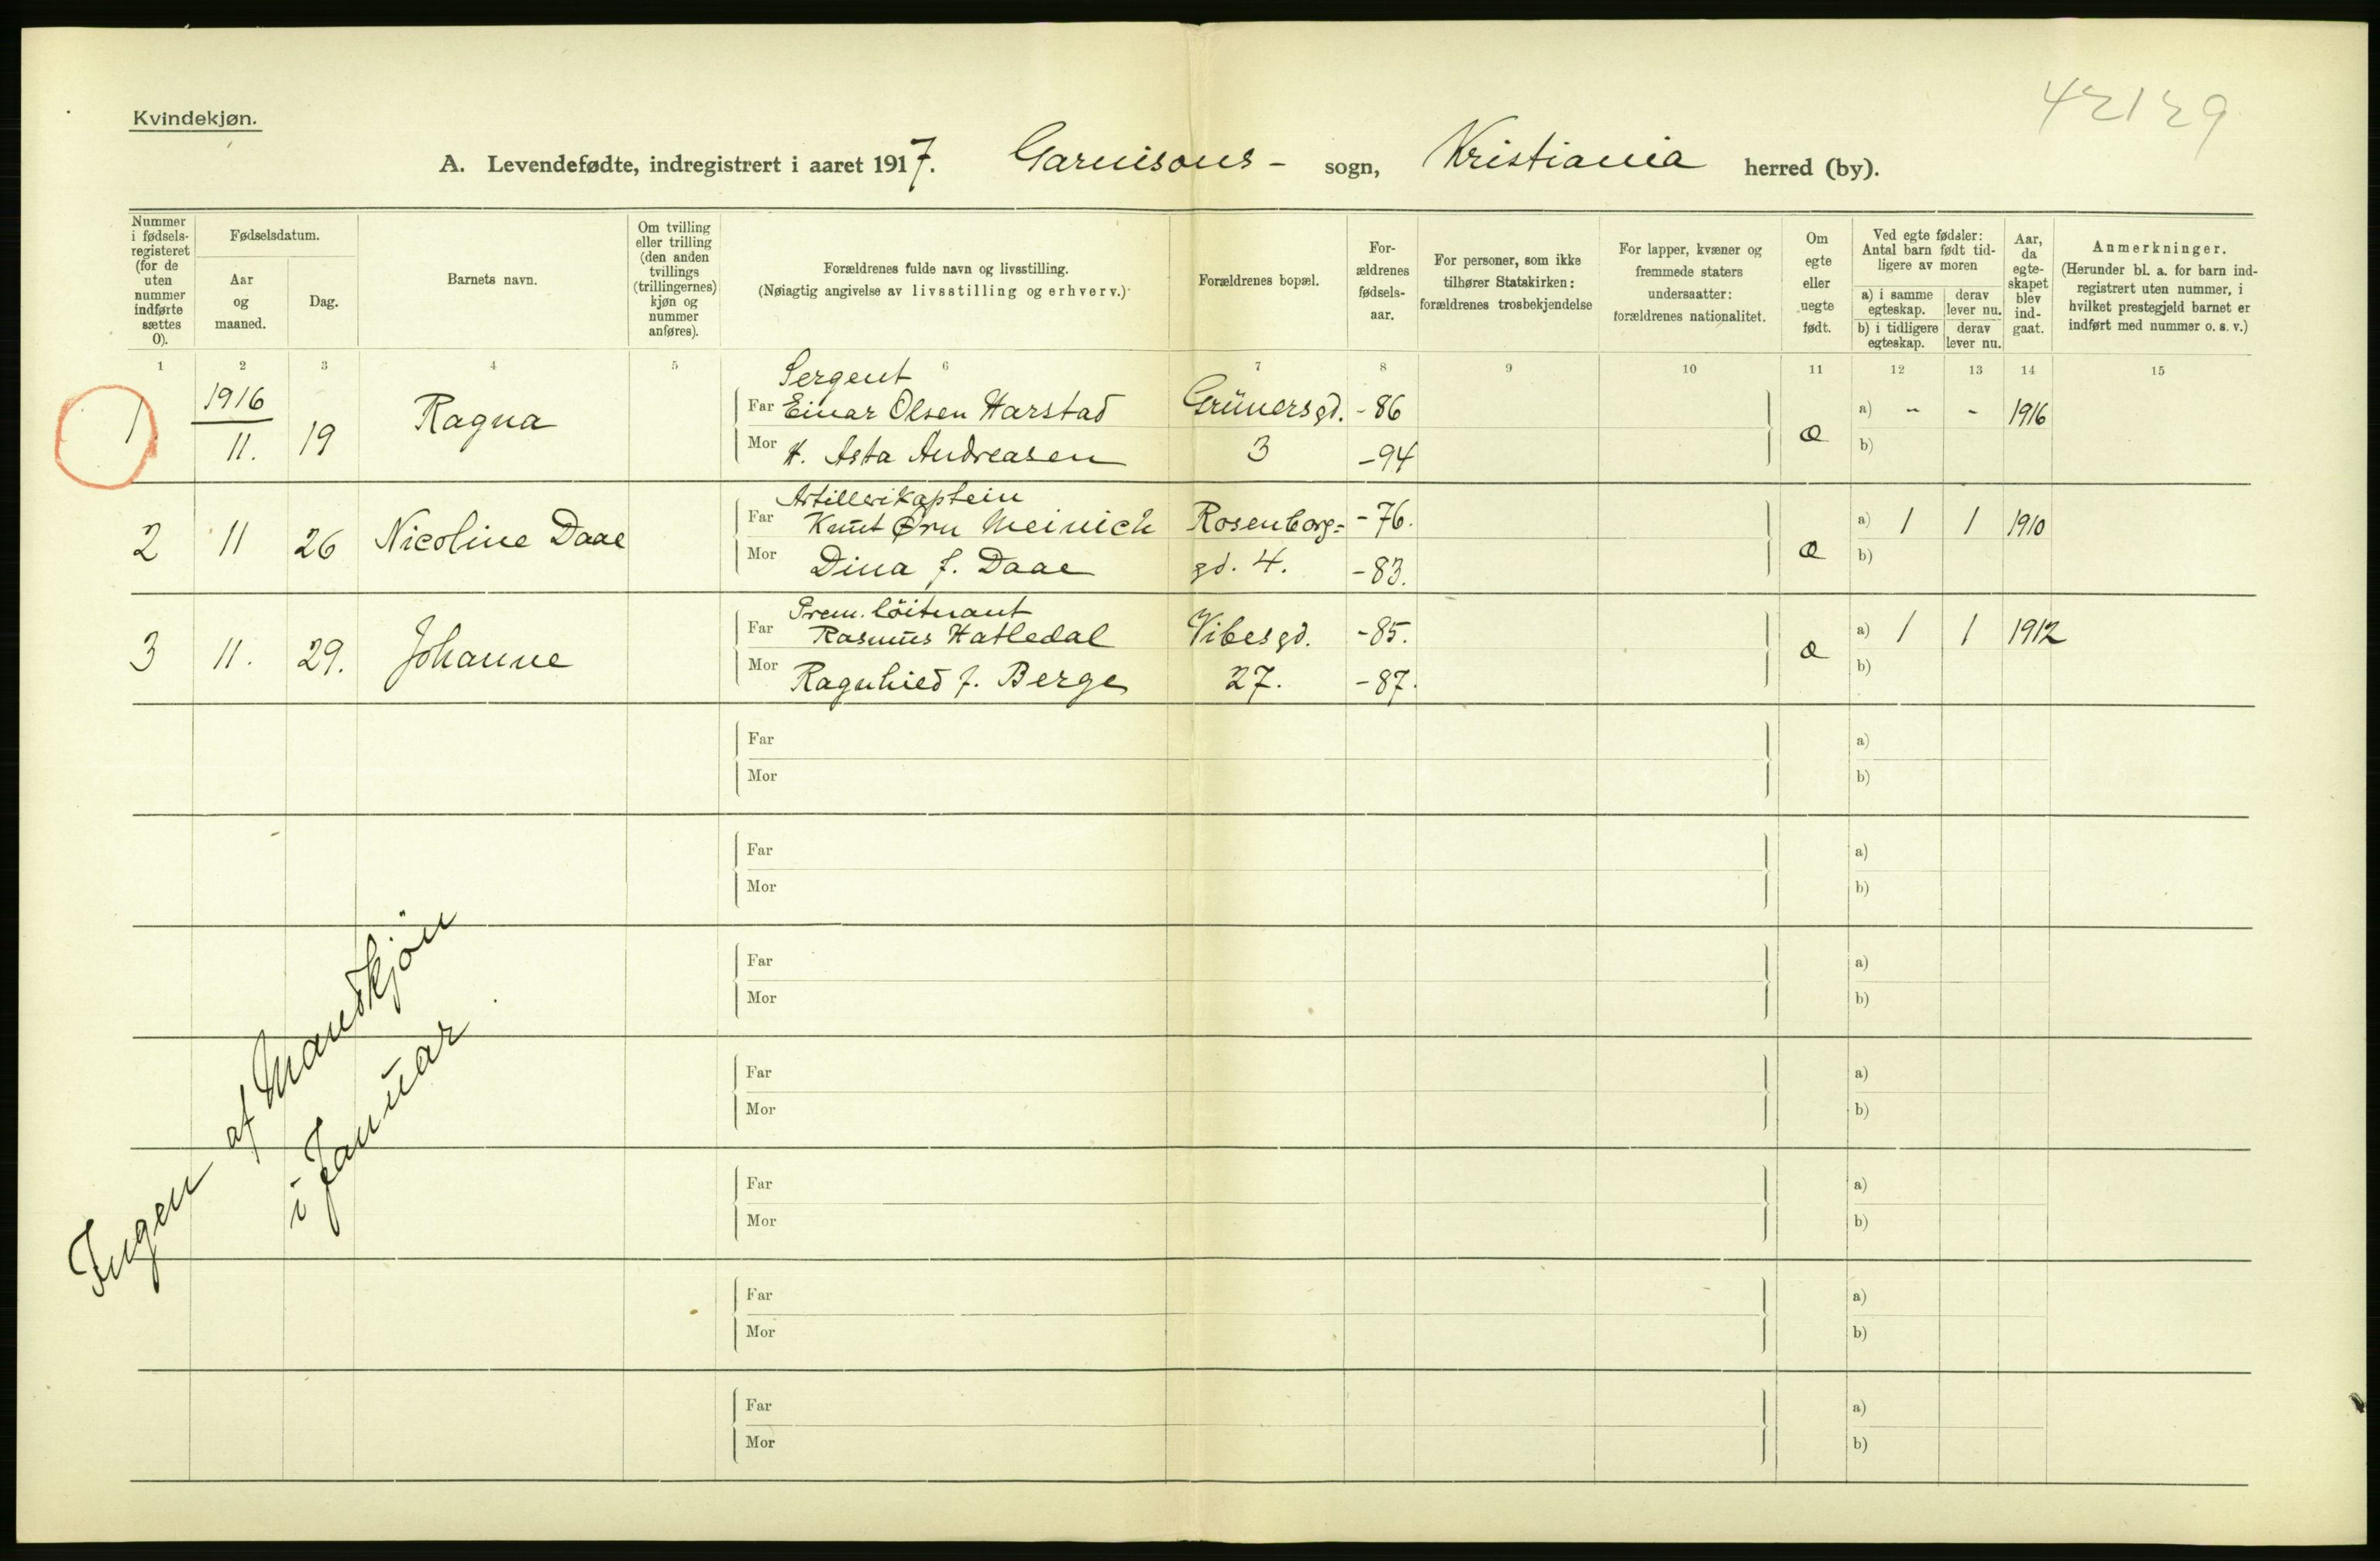 Kvindekjøn.
42129
A. Levendefødte, indregistrert i aaret 1917. Garnisons- sogn, Kristiania herred (by).
Nummer i fødsels-registeret (for de uten nummer indførte sættes 0).
Fødselsdatum.
Aar og maaned.
Dag.
Barnets navn.
Om tvilling eller trilling (den anden tvillings (trillingernes) kjøn og nummer anføres).
Forældrenes fulde navn og livsstilling.
(Nøiagtig angivelse av livsstilling og erhverv.)
Forældrenes bopæl.
For-ældrenes fødsels-aar.
For personer, som ikke tilhører Statskirken: forældrenes trosbekjendelse
For lapper, kvæner og fremmede staters undersaatter: forældrenes nationalitet.
Om egte eller uegte født.
Ved egte fødsler: Antal barn født tid-ligere av moren
a) i samme egteskap. derav lever nu.
b) i tidligere egteskap. derav lever nu.
Aar, da egte-skapet blev ind-gaat.
Anmerkninger.
(Herunder bl. a. for barn ind-registrert uten nummer, i hvilket prestegjeld barnet er indført med nummer o. s. v.)
1 2 3 4 5 6 7 8 9 10 11 12 13 14 15
Sergent
1. 1916 11. 19 Ragna Far Einar Olsen Harstad Grünersgd. -86 æ a) - - 1916
Mor H. Asta Andreasen 3 -94 b)
Artillerikaptein
2 11 26 Nicoline Daae Far Knut Ørn Meinich Rosenborg= -76. æ a) 1 1 1910
Mor Dina f. Daae gd. 4. -83. b)
Prem. löitnant
3 11. 29. Johanne Far Rasmus Hatledal Vibesgd. -85. æ a) 1 1 1912
Mor Ragnhild f. Berge 27. -87. b)
Far a)
Mor b)
Far a)
Mor b)
Far a)
Mor b)
Far a)
Mor b)
Far a)
Mor b)
Far a)
Mor b)
Far a)
Mor b)
Ingen af Mandkjön
i Januar